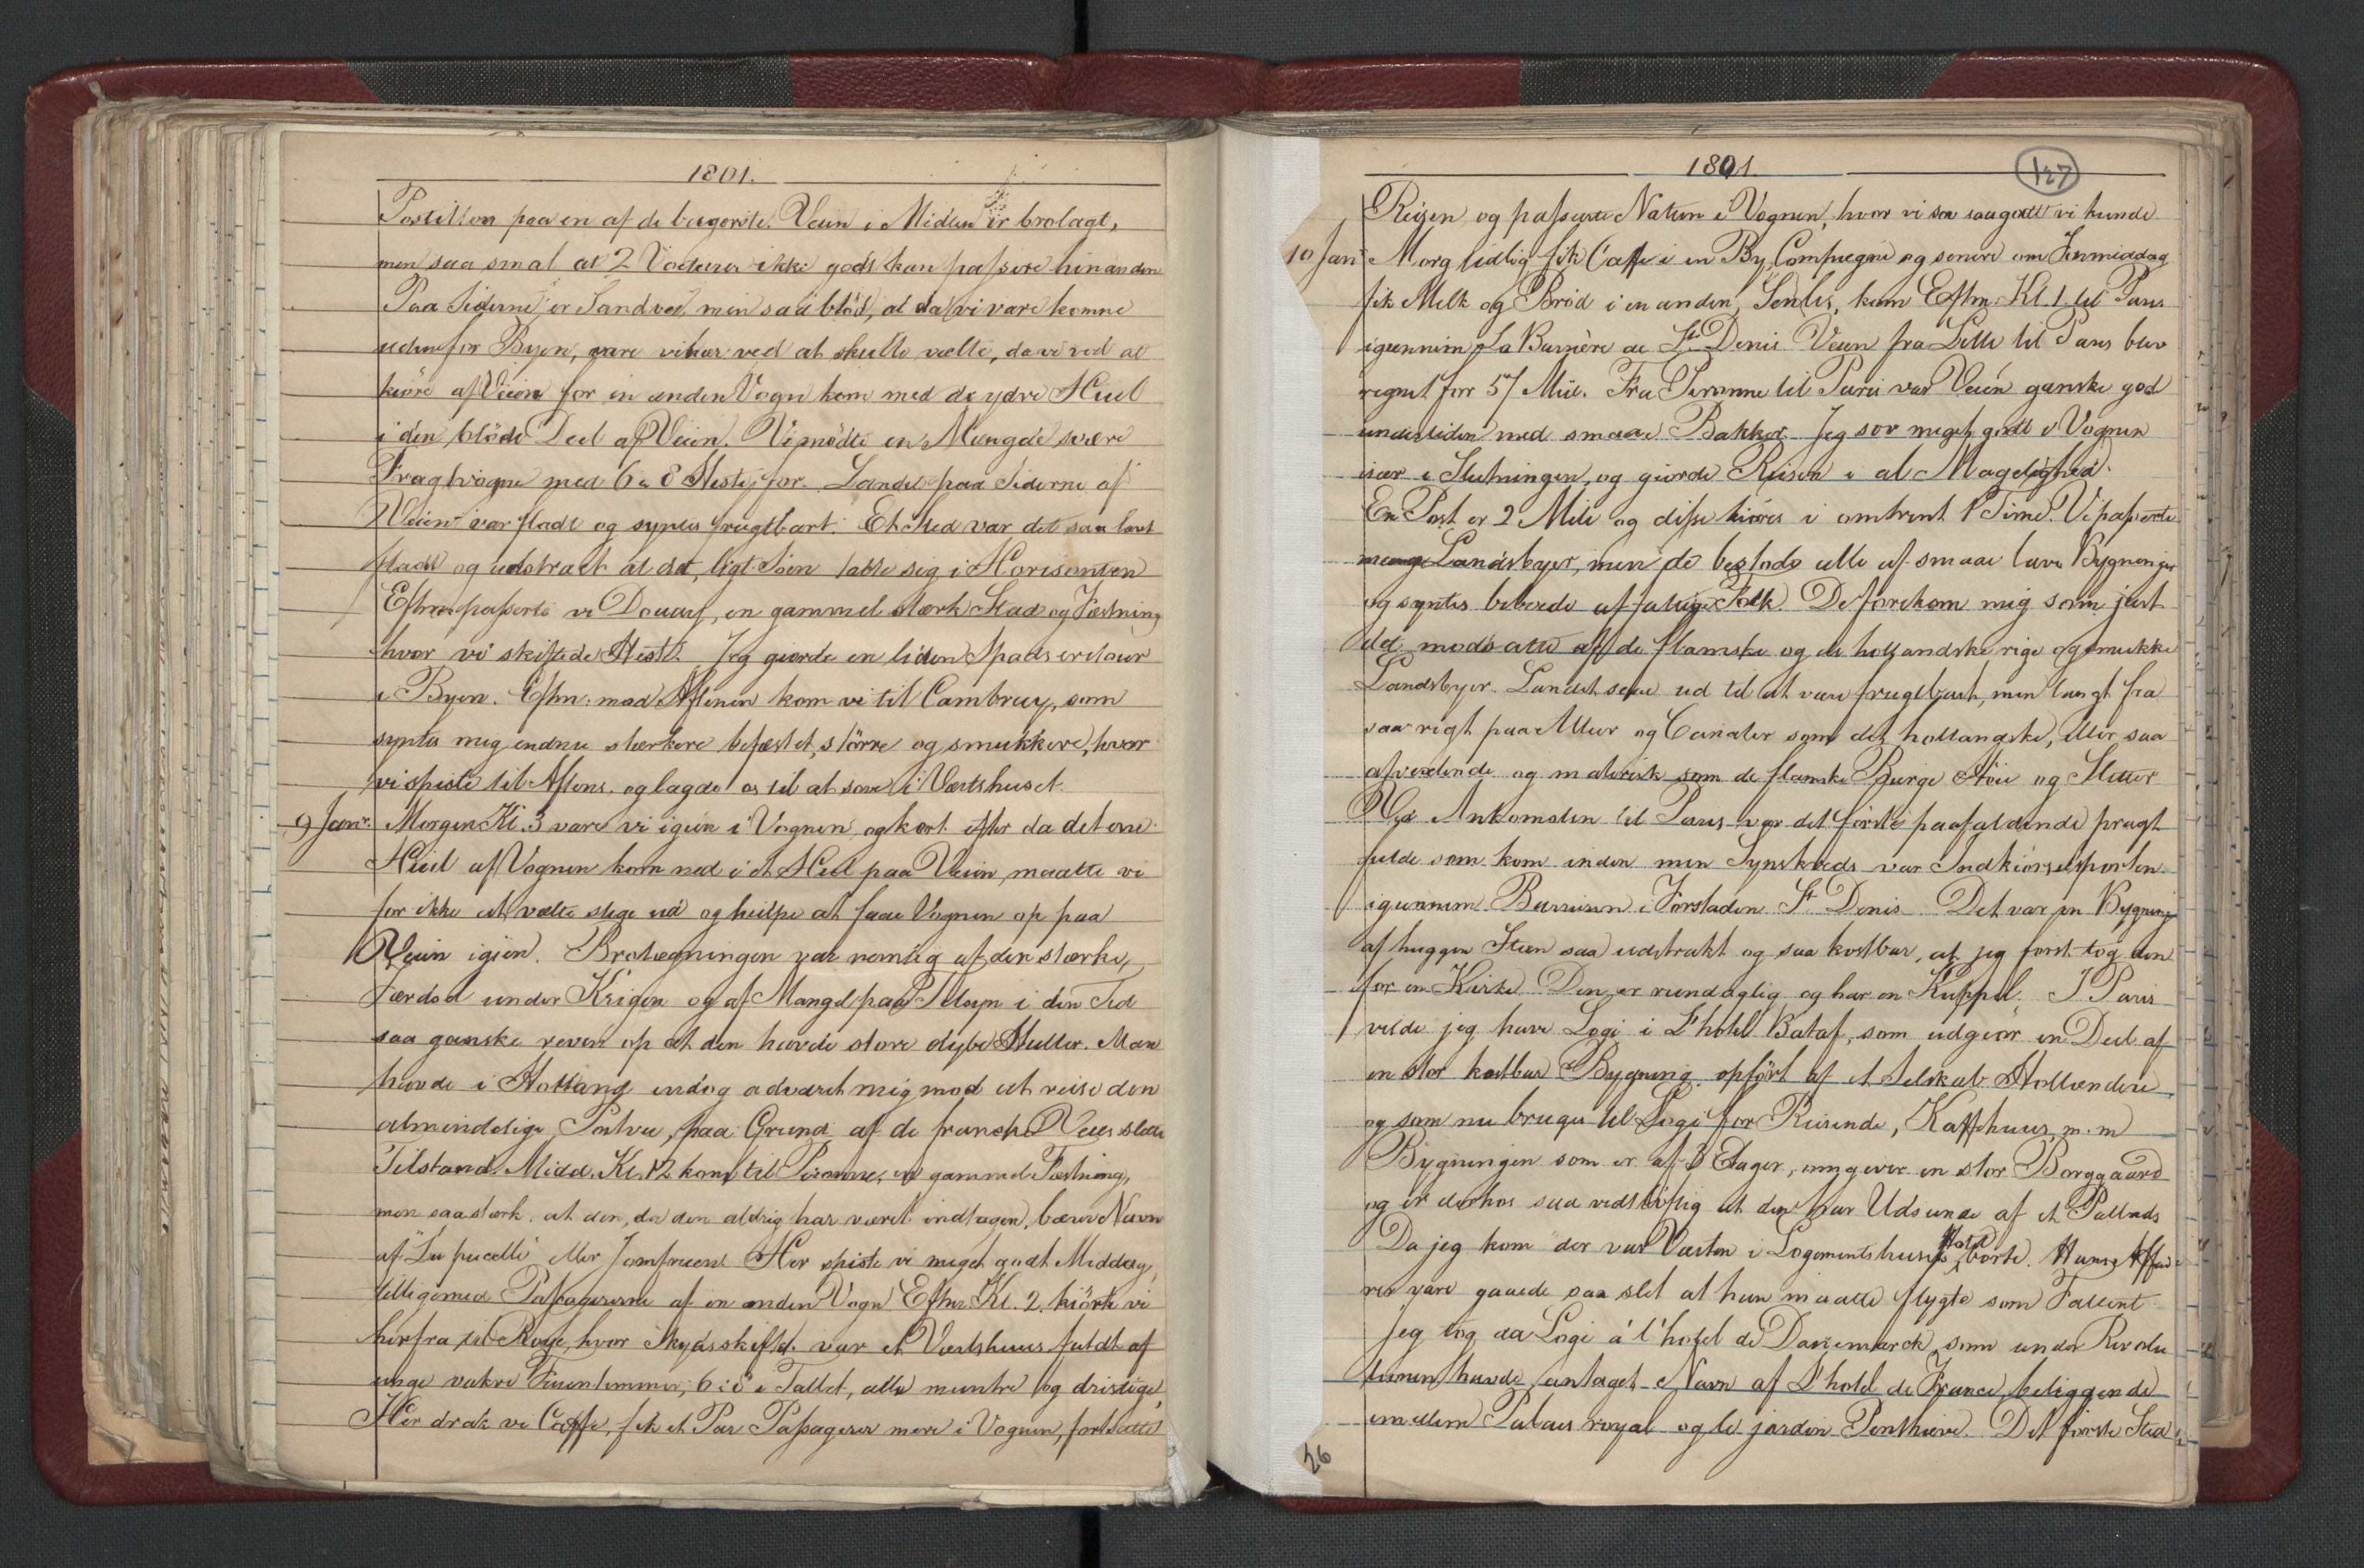 1801.
Postillon paa en af de bagerste. Veien i Midten er brolagt,
men saa smal at 2 Vogner ikke godt kan passere hinanden
Paa Siderne er Sandvei, men saa blød, at da vi vare komne
udenfor Byen, vare vi nær ved at skulle vælte, da vi ved at
kiøre af Veien for en anden Vogn kom med de ydre Hiul
i den bløde Deel af Veien. Vi mødte en Mængde svære
Fragtvogne med 6 a 8 Heste for. Landet paa Siderne af
Veien var fladt og syntes frugtbart. Et Sted var det saa lavt
fladt og udstrakt at det, ligt Søen tabte sig i Horisonten
Eftm passerte vi Douay, en gammel stærk Stad og Fæstning
hvor vi skiftede Heste. Jeg giorde en liden Spadseretour
i Byen. Eftm. mod Aftenen kom vi til Cambray, som
syntes mig endnu stærkere befæstet, større og smukkere, hvor
vi spiste til Aftens, og lagde os til at sove i Værtshuset.
9 Janr. Morgen Kl. 3 vare vi igien i Vognen, og kort efter da det ene
Hiul af Vognen kom ned i et Hul paa Veien, maatte vi
for ikke at vælte stige ud og hielpe at faae Vognen op paa
Veien igien. Brolægningen var nemlig af den stærke
Færdsel under Krigen og af Mangel paa Tilsyn i den Tid
saa ganske reven op at den havde store dybe Huller. Man
havde i Holland endog advaret mig mod at reise den
almindelige Postvei, paa Grund af de franske Veies slette
Tilstand. Midd. Kl. 12 kom til Peronne, en gammel Fæstning,
men saa stærk, at den, da den aldrig har været indtagen, bærer Navn
af "La pucelle" eller Jomfruen. Her spiste vi meget godt Middag,
tilligemed Passagererne af en anden Vogn. Efter Kl. 2. kiørte vi
herfra til Roye, hvor Skydsskiftet var et Værtshuus fuldt af
unge vakre Fruentimmer, 6 i 8 i Tallet, alle muntre og dristige,
Her drak vi Caffe, fik et Par Passagerer mere i Vognen, fortsatte
1801.
127
Reisen og passerte Natten i Vognen, hvor vi sov saa godt vi kunde
10 Janr Morg tidlig fik Caffe i en By Compiegne og senere om Formiddag
fik Melk og Brød i en anden, Senlis, kom Eftm. Kl. 1. til Paris
igiennem La Barrière de St. Denis. Veien fra Lille til Paris blev
regnet for 57 Mile. Fra Peronne til Paris var Veien ganske god
undertiden med smaae Bakker. Jeg sov meget godt i Vognen
især i Slutningen, og giorde Reisen i al Magelighed.
En Post er 2 Mile og disse kiøres i omtrent 1 Time. Vi passerte
mange Landsbyer, men de bestode alle af smaae lave Bygninger
og syntes beboede af fattige Folk. De forekom mig som just
det modsatte af de flamske og de hollandske rige og smukke
Landsbyer. Landet saae ud til at være frugtbart, men langt fra
saa rigt paa Alleer og Canaler som det hollandske, eller saa
afvexlende og malerisk som de flamske Bierge Høie og Sletter
Ved Ankomsten til Paris var det første paafaldende pragt
fulde som kom inden min Synskreds var Indkiørselsporten
igiennem Barrieren i Forstaden St Denis. Det var en Bygning
af huggen Steen saa udstrakt og saa kostbar, at jeg først tog den
for en Kirke. Den er rundaglig og har en Kuppel. I Paris
vilde jeg have Logi i L'hotel Bataf, som udgiør en Deel af
en stor kostbar Bygning opført af et Selskab Hollændere,
og som nu bruges til Logi for Reisende, Kaffehuus m. m
Bygningen som er af 3 Etager, omgiver en stor Borggaard
og er derhos saa vidtløftig at den har Udseende af et Pallads
Da jeg kom der var Værten i Logementshuset Hotel borte. Hans Affai
rer vare gaaede saa slet at han maatte flygte som Fallent
Jeg tog da Logi á l'hotel de Danemarck som under Revolu
tionen havde antaget Navn af L'hotel de France, beliggende
imellem Palais royal og le jardin Penthievre. Det første Sted
26